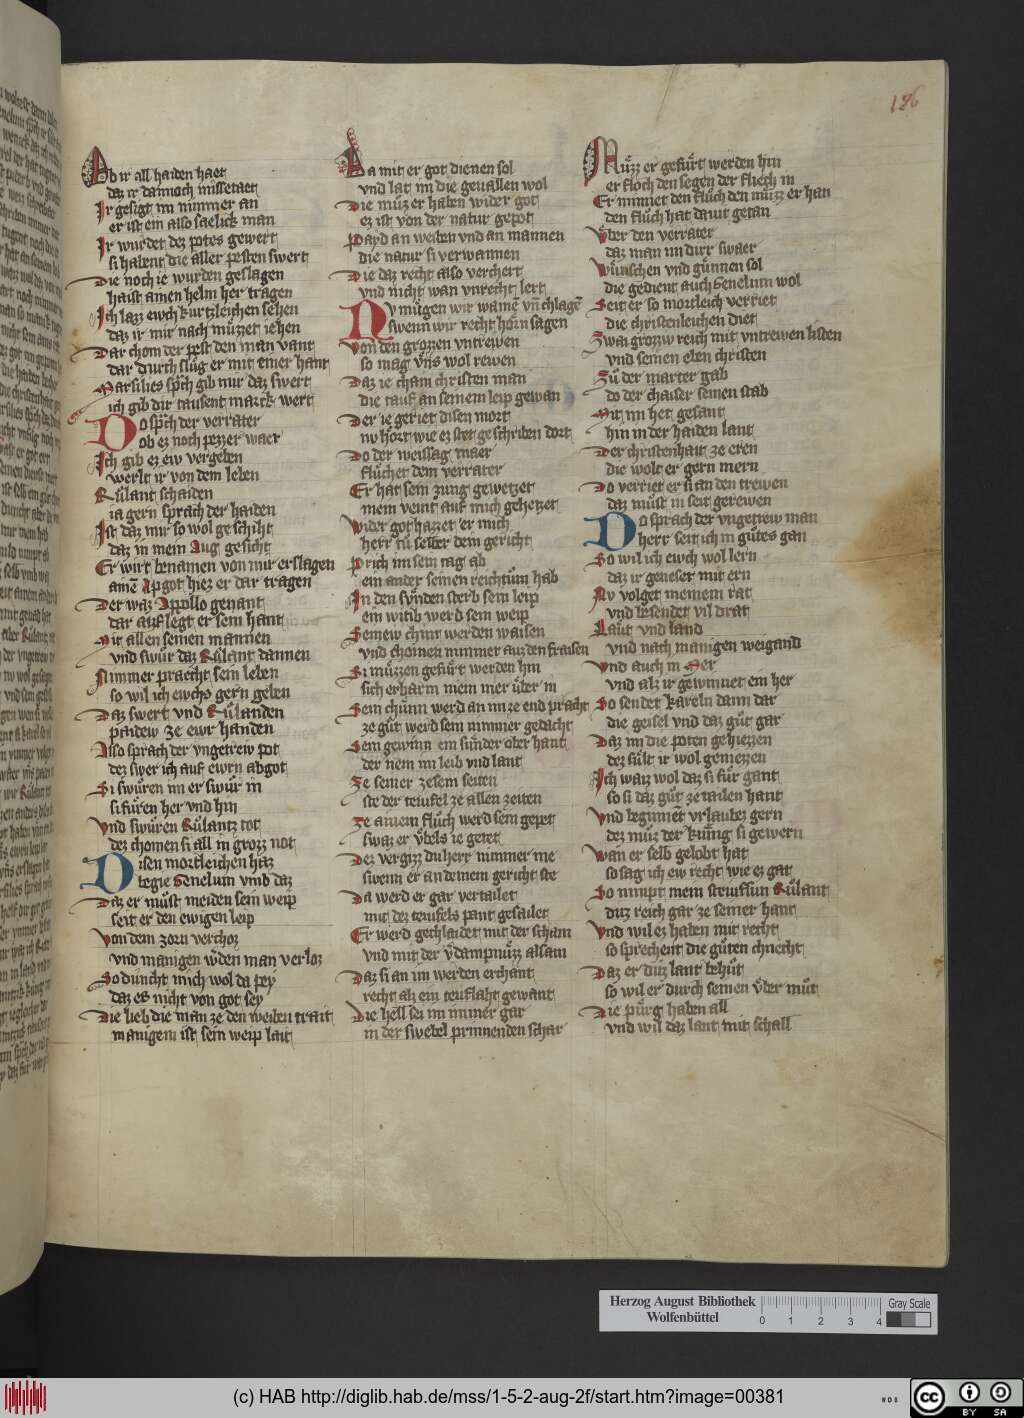 186
Ob ir all haiden haet
daz ir dannoch missetaet
Ir gesigt im nimmer an
er ist ein also saelick man
Ir wurdet dez potes gewert
si habent die aller pesten swert
Die noch ie wurden geslagen
haist ainen helm her tragen
Ich lazz ewch kurtzleichen sehen
daz ir mir nach müzzet iehen
Dar chom der pest den man vant
dar durch slüg er mit einer hant
Marsilies sp̄ch gib mir daz swert
ich gib dir tausent marck wert
Do sp̄ch der verrater
ob ez noch pezzer waer
Ich gib ez ew vergeben
werlt ir von dem leben
Rülant schaiden
ia gern sprach der haiden
Ist daz mir so wol geschiht
daz in mein Aug gesicht
Er wirt benamen von mir erslagen
ainē Apgot hiez er dar tragen
Der waz Appollo genant
dar auf legt er sein hant
Mit allen seinen mannen
vnd swür daz Rülant dannen
Nimmer praecht sein leben
so wil ich ewchs gern geben
Daz swert vnd Rülanden
paidew ze ewr handen
Also sprach der vngetrew pot
dez swer ich auf ewrn abgot
Si swüren im er swür in
si füren her vnd hin
Vnd swüren Rülantz tot
dez chomen si all in grozz not
Disen mortleichen haz
begie Genelun vmb daz
Daz er müst meiden sein weip
seit er den ewigen leip
Von dem zorn verchoz
vnd manigen w̄den man verloz
So duncht mich wol da pey
daz es nicht von got sey
Die lieb die man ze den weiben trait
manigem ist sein weip lait
Da mit er got dienen sol
vnd lat im die geuallen wol
Die müz er haben wider got
ez ist von der natur gepot
Payd an weiben vnd an mannen
die natur si verwannen
Die daz recht also verchert
vnd nicht wan vnrecht lert
Nv mügen wir wainē vn̄ chlagē
swenn wir recht hörn sagen
Von den grozzen vntrewen
so mag v̄ns wol rewen
Daz ie chain christen man
die tauf an seinem leip gewan
Der ie geriet disen mort
nv hört wie ez stet geschriben dort
Do der weissag maer
flüchet dem verrater
Er hat sein zung gewetzet
mein veint auf mich gehetzet
Wider got hazzet er mich
herr tü selber dem gericht
Prich im sein tag ab
ein ander seinen reichtüm hab
In den sünden sterb sein leip
ein witib werd sein weip
Seinew chint werden waisen
vnd chomen nimmer auz den fraisen
Si müzzen gefürt werden hin
sich erbarm niem mer über in
Sein chünn werd an im ze end pracht
ze güt werd sein nimmer gedacht
Sein gewinn ein sünder ober hant
der nem im leib vnd lant
Ze seiner zesem seiten
ste der teiufel ze allen zeiten
Ze ainem flüch werd sein gepet
swaz er v̈bels ie getet
Dez vergizz du herr nimmer me
swenn er an deinem gericht ste
Da werd er gar vertailet
mit dez teufels pant gesailet
Er werd gechlaidet mit der scham
vnd mit der v̈dampnüzz alsam
Daz si an im werden erchant
recht alz ein teuflaht gewant
Die hell sei im immer gar
in der swebel prinnenden schar
Müzz er gefürt werden hin
er floch den segen der fliech in
Er minnet den flüch den müzz er han
den flüch hat dauit getan
Über den verrater
daz man im durr swaer
Wünschen vnd günnen sol
die gedient auch Genelun wol
Seit er so mortleich verriet
die christenleichen diet
Zwai grozzw reich mit vntrewen listen
vnd seinen eben christen
Zü der marter gab
do der chaiser seinen stab
Mit im het gesant
hin in der haiden lant
Der christenhait ze eren
die wolt er gern mern
Do verriet er si an den trewen
daz müst in seit gerewen
Do sprach der vngetrew man
herr seit ich in gütes gan
So wil ich ewch wol lern
daz ir geneset mit ern
Nv volget meinem rat
vnd besendet vil drat
Lawt vnd land
vnd nach manigen weigand
Vnd auch in Mer
vnd alz ir gewinnet ein her
So sendet kareln dann dar
die geisel vnd daz güt gar
Daz im die poten gehiezzen
dez sült ir wol geniezzen
Ich waiz wol daz si für gant
so si daz güt ze tailen hant
Vnd beginnēt vrlaubez gern
dez müz der künig si gewern
Wan er selb gelobt hat
so sag ich ew recht wie ez gat
So nimpt mein steiufsun Rülant
ditz reich gar ze seiner hant
Vnd wil ez haben mit recht
so sprechent die güten chnecht
Daz er ditz lant behüt
so wil er durch seinen v̈ber müt
Die pürg haben all
vnd wil daz lant mit schall
Herzog August Bibliothek
Wolfenbüttel
0 1 2 3 4
Gray Scale
(c) HAB http://diglib.hab.de/mss/1-5-2-aug-2f/start.htm?image=00381
WD6
cc BY SA